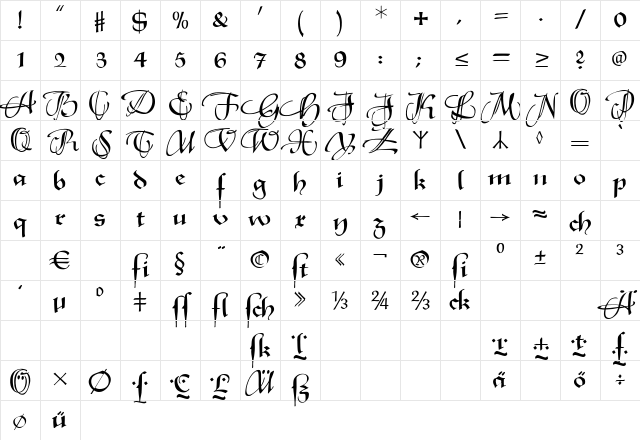 ! " # $ % & ' ( ) * + , = · / 0
1 2 3 4 5 6 7 8 9 : ; ≤ = ≥ ? @
A B C D E F G H I J K L M N O P
Q R S T U V W X Y Z \ ◊ =
a b c d e f g h i j k l m n o p
q r s t u v w x y z ← ¦ → ≈ ch
€ fi § ¨ © ſt « ¬ ® ſi 0 ± 2 3
´ u o ‡ ſſ fl ſch » ⅓ 2/4 ⅔ ck Ä
ſk
Ö × Ø Ü ß ä ö ÷
ø ü